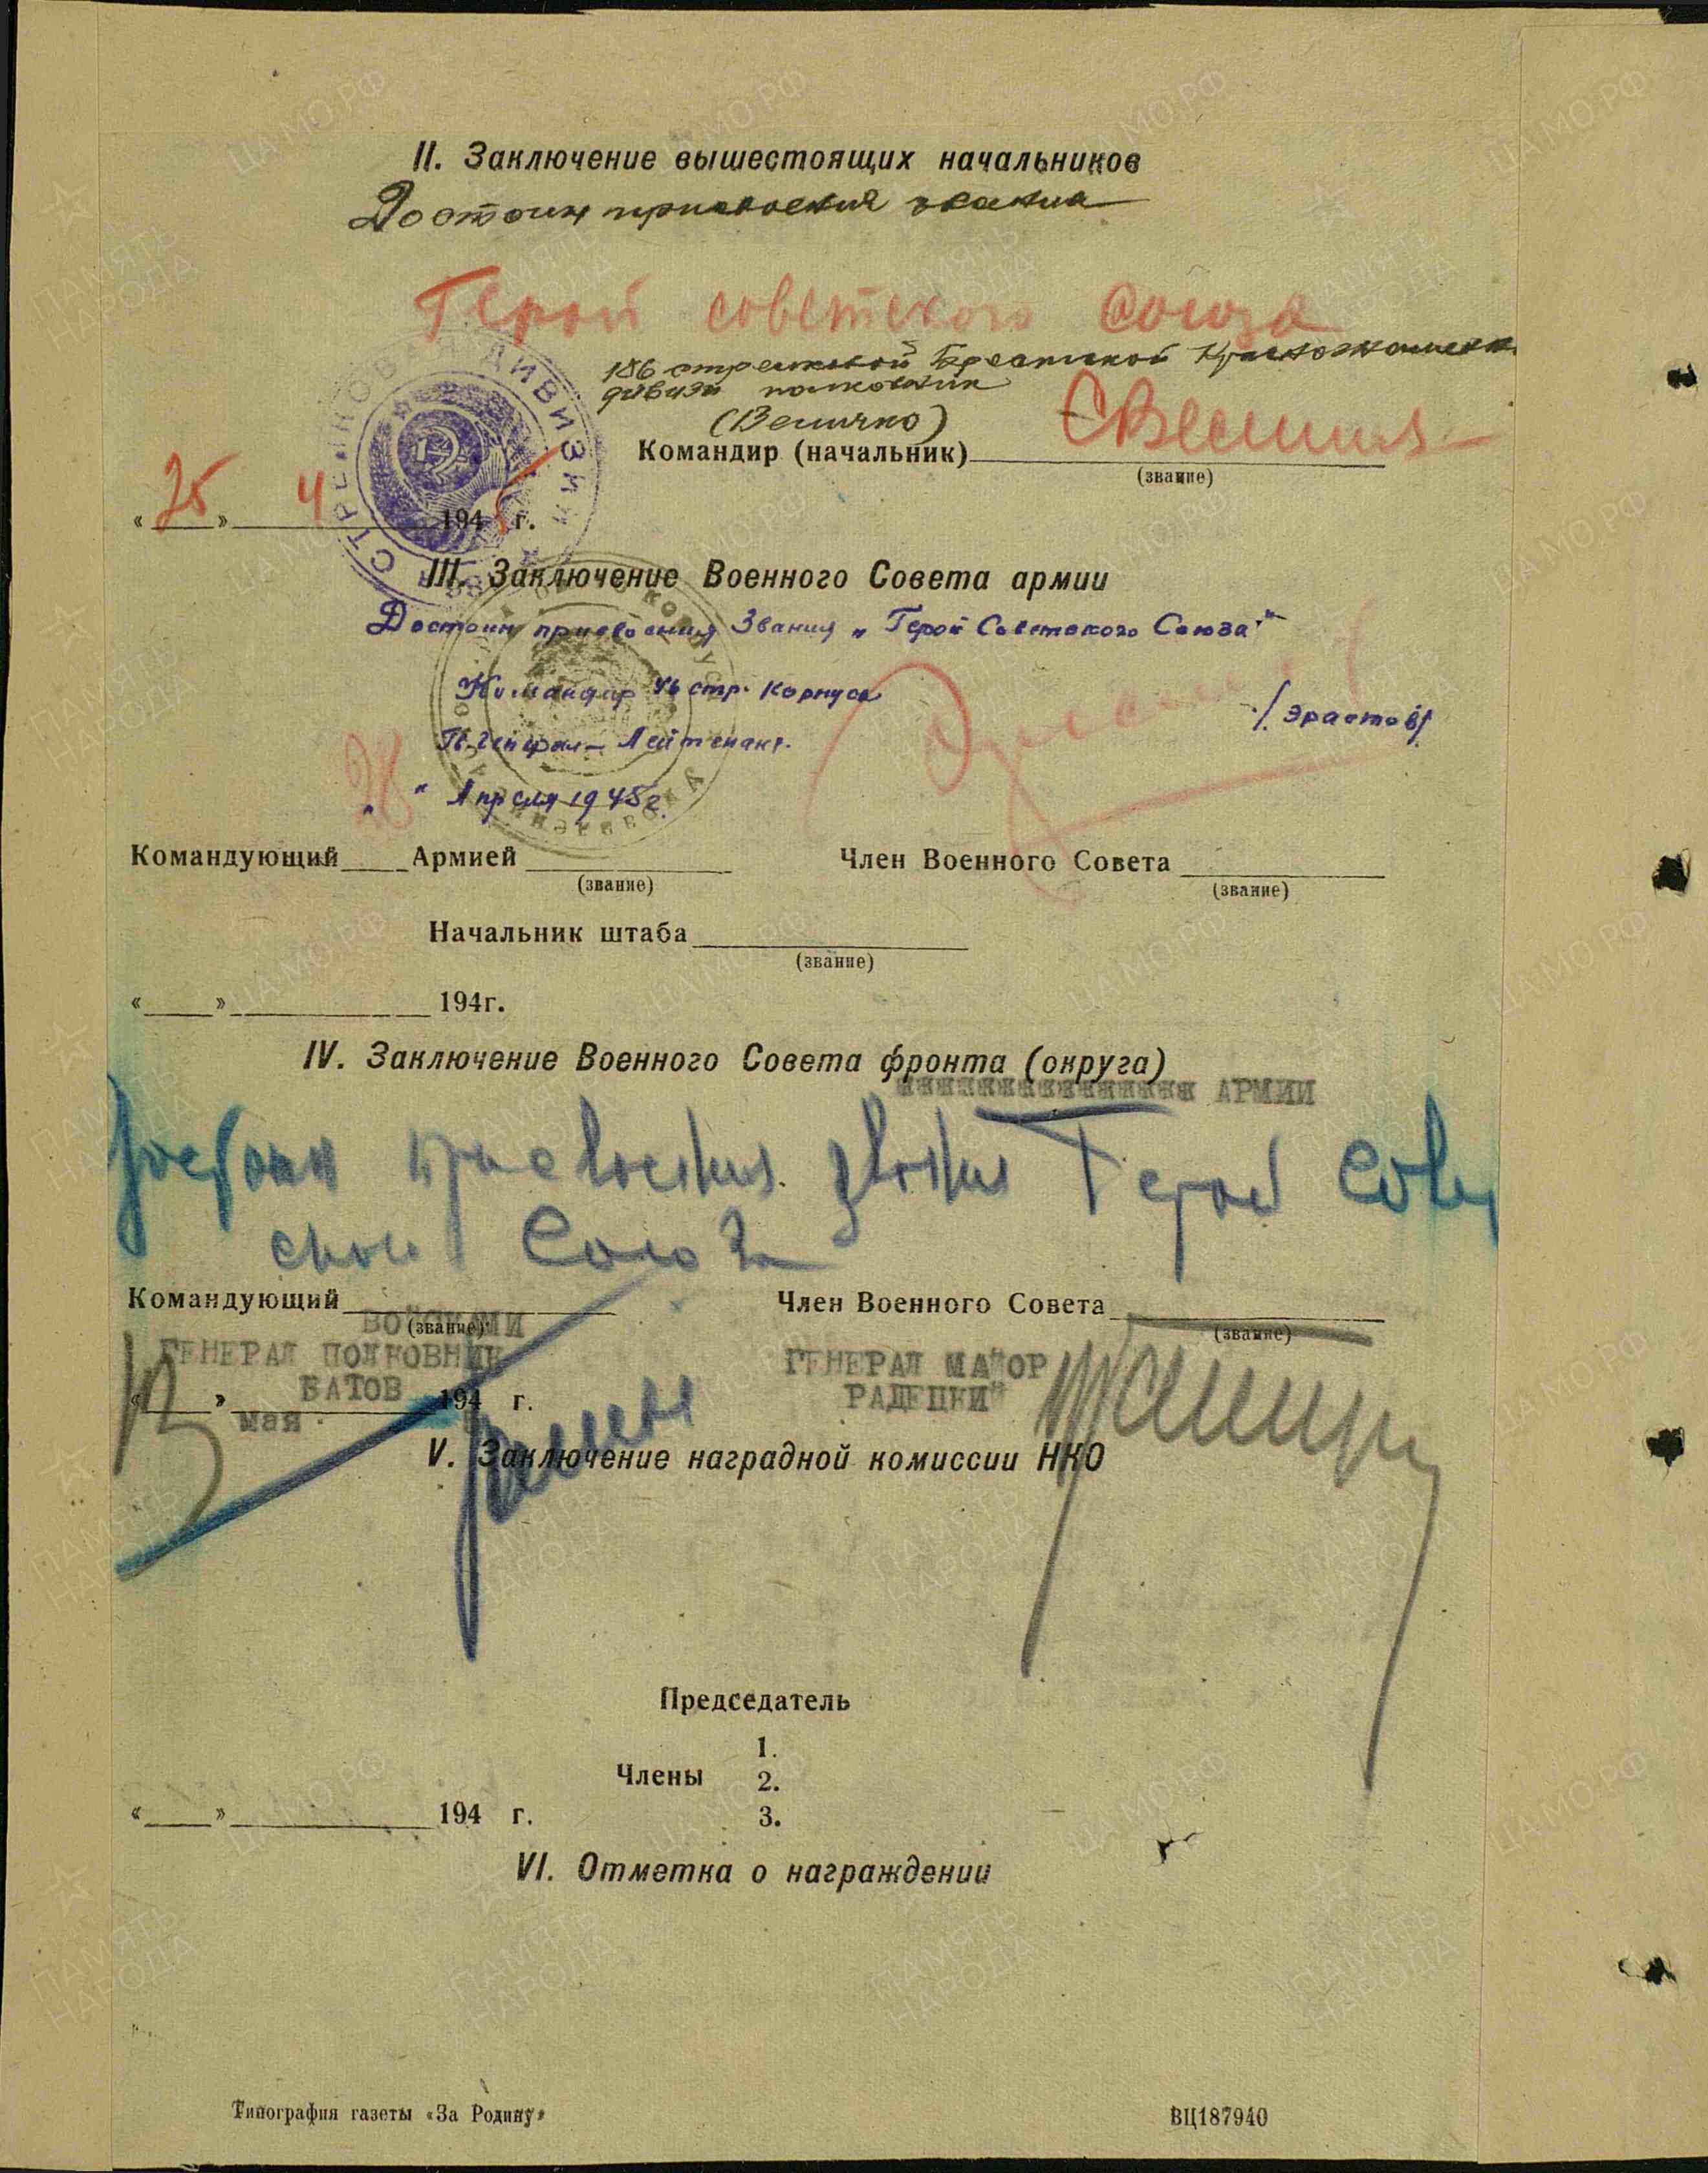 II. Заключение вышестоящих начальников
Достоин присвоения звания
Герой советского союза
186 стрелковой Брестской Краснознаменн.
дивизи полковник
(Величко)
Командир (начальник)
(звание)
«25» 4 1945 г.
СТРЕЛКОВАЯ ДИВИЗИЯ
III. Заключение Военного Совета армии
Достоин присвоения Звания „Герой Советского Союза"
Командир 46 стр. корпуса
Гв. генерал-Лейтенант. /Эрастов/
28 " Апреля 1945 г.
Командующий Армией Член Военного Совета
(звание) (звание)
Начальник штаба
(звание)
« » 194г.
IV. Заключение Военного Совета фронта (округа)
АРМИИ
Достоин присвоения звания Герой Совет
ского Союза
Командующий Член Военного Совета
ВОЙСКАМИ
(звание) (звание)
ГЕНЕРАЛ ПОЛКОВНИК ГЕНЕРАЛ МАЙОР
БАТОВ РАДЕЦКИЙ
« » 194 г.
мая
V. Заключение наградной комиссии НКО
Председатель
1.
Члены 2.
« » 194 г. 3.
VI. Отметка о награждении
Типография газеты «За Родину»
ВЦ187940
ПАМЯТЬ НАРОДА
ЦАМО.РФ